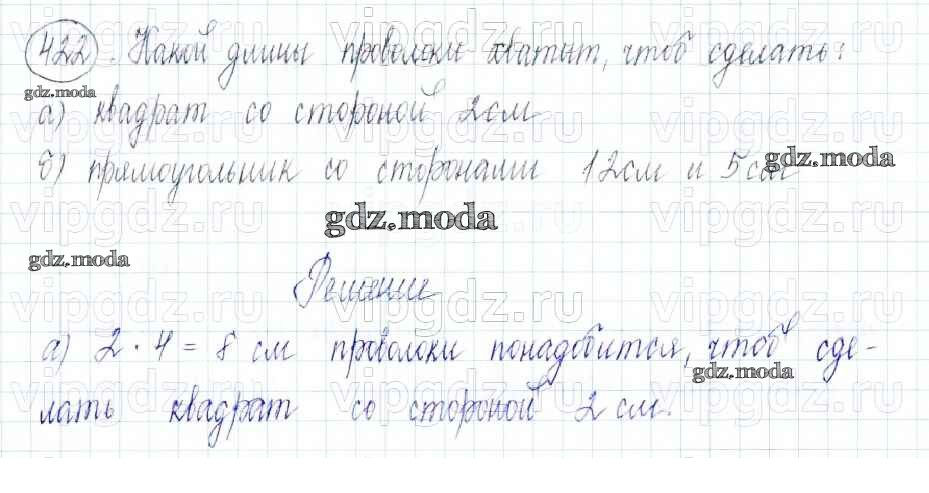 422. Какой длины проволоки хватит, чтоб сделать:
gdz.moda
а) квадрат со стороной 2см
б) прямоугольник со сторонами 12см и 5см
gdz.moda
gdz.moda
gdz.moda
Решение
а) 2 · 4 = 8 см проволоки понадобится, чтоб сде-
gdz.moda
лать квадрат со стороной 2 см.
vipgdz.ru